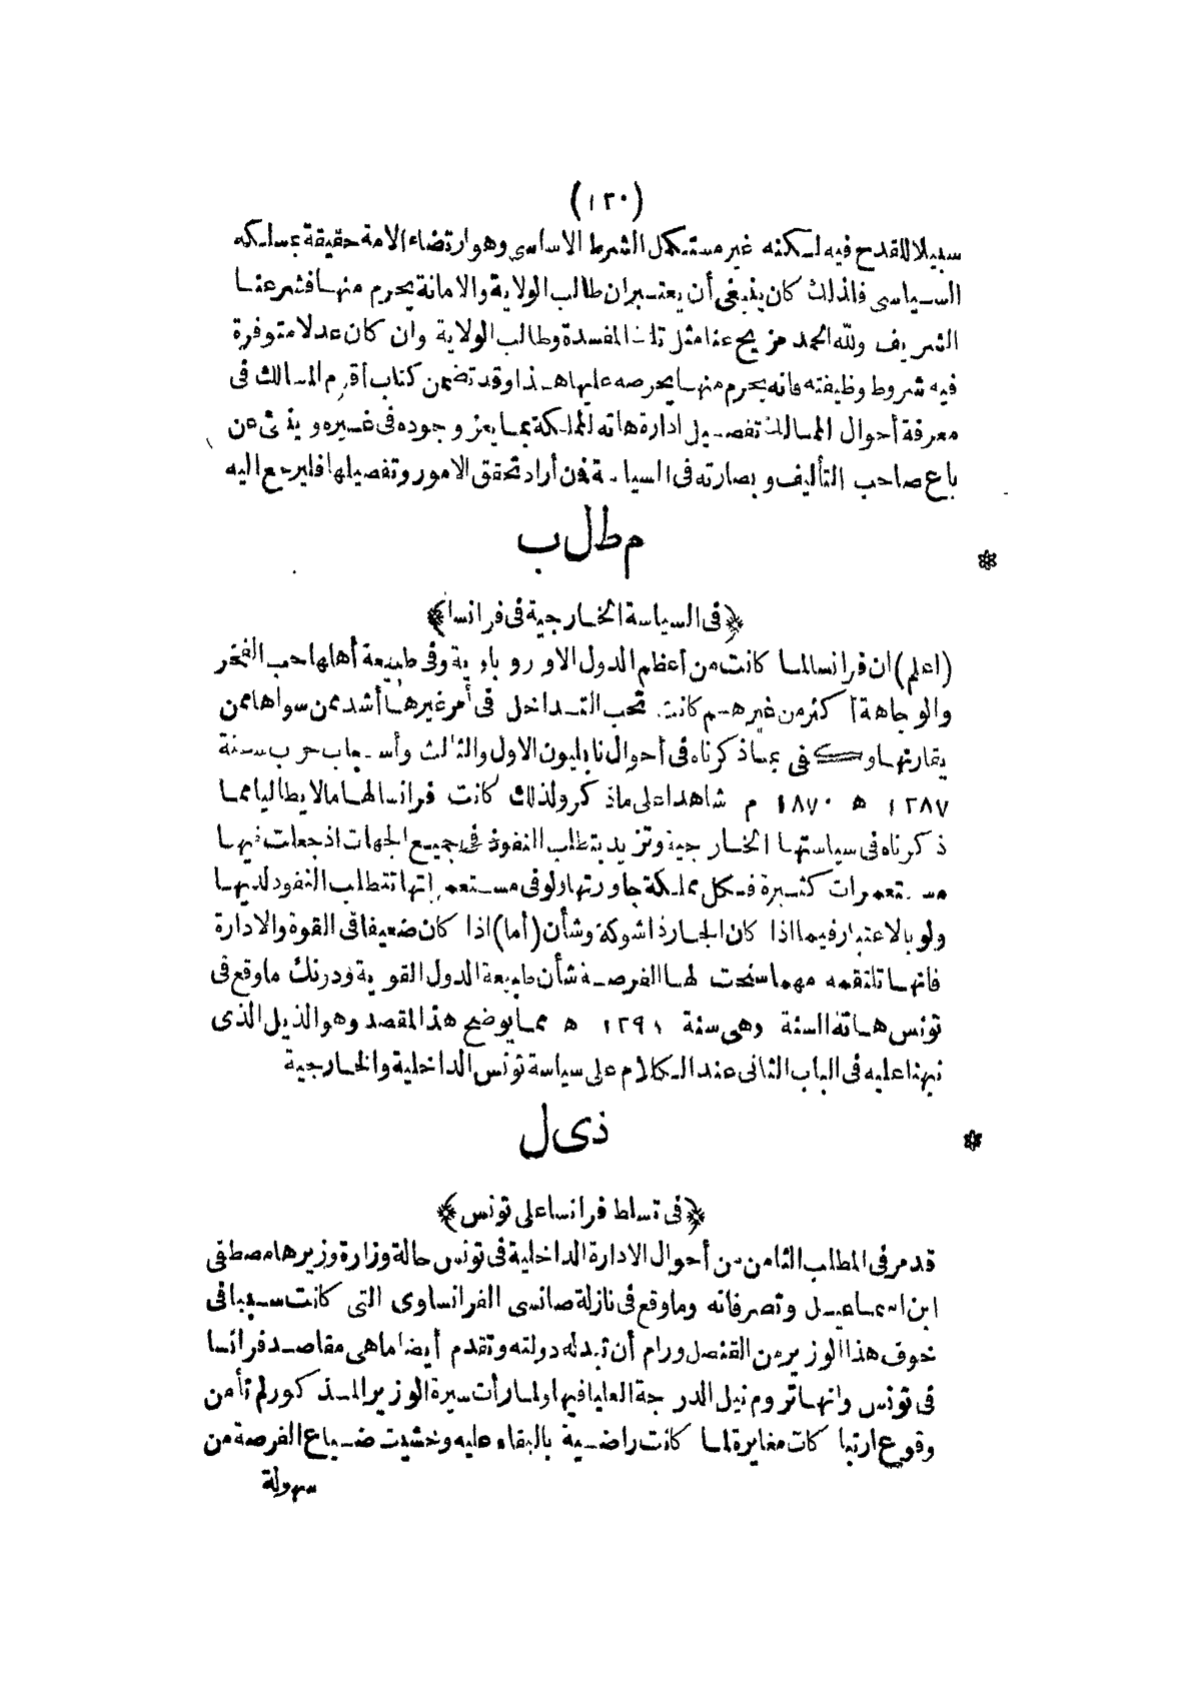 (١٣٠)
سبيلا للقدح فيه لكنه غير مستكمل الشرط الاساسى وهو ارتضاء الامة حقيقة بمسلكه
السياسى فلذلك كان ينبغى أن يعتبر ان طالب الولاية والامانة يحرم منها فشرعنا
الشريف ولله الحمد مزيح عنا مثل تلك المفسدة وطالب الولاية وان كان عدلا متوفرة
فيه شروط وظيفته فانه يحرم منها بحرصه عليها هذا وقد تضمن كتاب أقوم المسالك فى
معرفة أحوال الممالك تفصيل ادارة هاته المملكة بما يعز وجوده فى غيره وينبئ عن
باع صاحب التأليف وبصارته فى السياسة فمن أراد تحقق الامور وتفصيلها فليرجع اليه
مطلب
*
﴿فى السياسة الخارجية فى فرانسا﴾
(اعلم) ان فرانسا لما كانت من أعظم الدول الاوروباوية وفى طبيعة أهلها حب الفخر
والوجاهة أكثر من غيرهم كانت تحب التداخل فى أمر غيرها أشد ممن سواها ممن
يقارنها وكفى بما ذكرناه فى أحوال نابليون الاول والثالث وأسباب حرب سنة
١٢٨٧ ه ١٨٧٠ م شاهدا على ما ذكر ولذلك كانت فرانسا لها ما لايطاليا مما
ذكرناه فى سياستها الخارجية وتزيد بتطلب النفوذ فى جميع الجهات اذ جعلت فيها
مستعمرات كثيرة فكل مملكة جاورتها ولو فى مستعمراتها تتطلب النفوذ لديها
ولو بالاعتبار فيما اذا كان الجار ذا شوكة وشأن (أما) اذا كان ضعيفا فى القوة والادارة
فانها تلتقمه مهما سنحت لها الفرصة شأن طبيعة الدول القوية ودرنك ما وقع فى
تونس هاته السنة وهى سنة ١٢٩١ ه مما يوضح هذا المقصد وهو الذيل الذى
نبهنا عليه فى الباب الثانى عند الكلام على سياسة تونس الداخلية والخارجية
ذيل
*
﴿فى تسلط فرانسا على تونس﴾
قد مر فى المطلب الثامن من أحوال الادارة الداخلية فى تونس حالة وزارة وزيرها مصطفى
ابن اسماعيل وتصرفاته وما وقع فى نازلة صانسى الفرانساوى التى كانت سببا فى
خوف هذا الوزير من القنصل ورام أن تبدله دولته وتقدم أيضا ما هى مقاصد فرانسا
فى تونس وانها تروم نيل الدرجة العليا فيها ولما رأت سيرة الوزير المذكور لم تأمن
وقوع ارتباكات مغايرة لما كانت راضية بالبقاء عليه وخشيت ضياع الفرصة من
سهولة